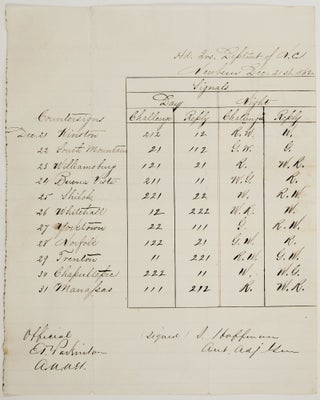 Hd. Qrs. Deptmt of N.C.
Newbern Dec. 21st 1862
Signals
Day Night
Countersigns Challenge Reply Challenge Reply
Dec. 21 Winston 212 12 R.W. W.
22 South Mountain 21 112 G.W. G.
23 Williamsburg 121 21 R. W.R.
24 Buena Vista 211 11 W.G. R.
25 Shiloh 221 22 W. R.W.
26 Whitehall 12 222 W.R. W.
27 Yorktown 22 111 G. R.W.
28 Norfolk 122 21 G.W. R.
29 Trenton 11 221 R.W. G.W.
30 Chapultepec 222 11 W. W.G.
31 Manassas 111 212 R. W.R.
Official (signed) S. Hoffman
Asst. Adj. Gen
A.A.A.G.